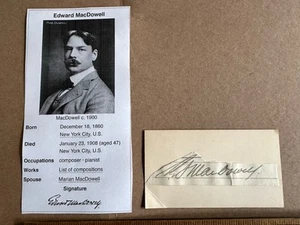 Edward MacDowell
MacDowell c. 1900
Born December 18, 1860
New York City, U.S.
Died January 23, 1908 (aged 47)
New York City, U.S.
Occupations composer - pianist
Works List of compositions
Spouse Marian MacDowell
Signature
Edward MacDowell
MacDowell